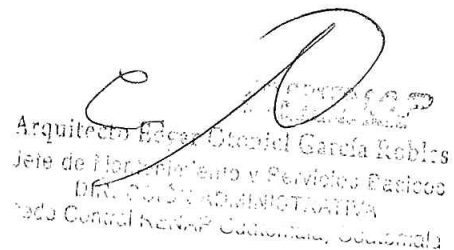 Arquitecto Edgar Otoniel García Robles
Jefe de Mantenimiento y Servicios Básicos
DIRECCIÓN ADMINISTRATIVA
Sede Central RENAP Guatemala, Guatemala